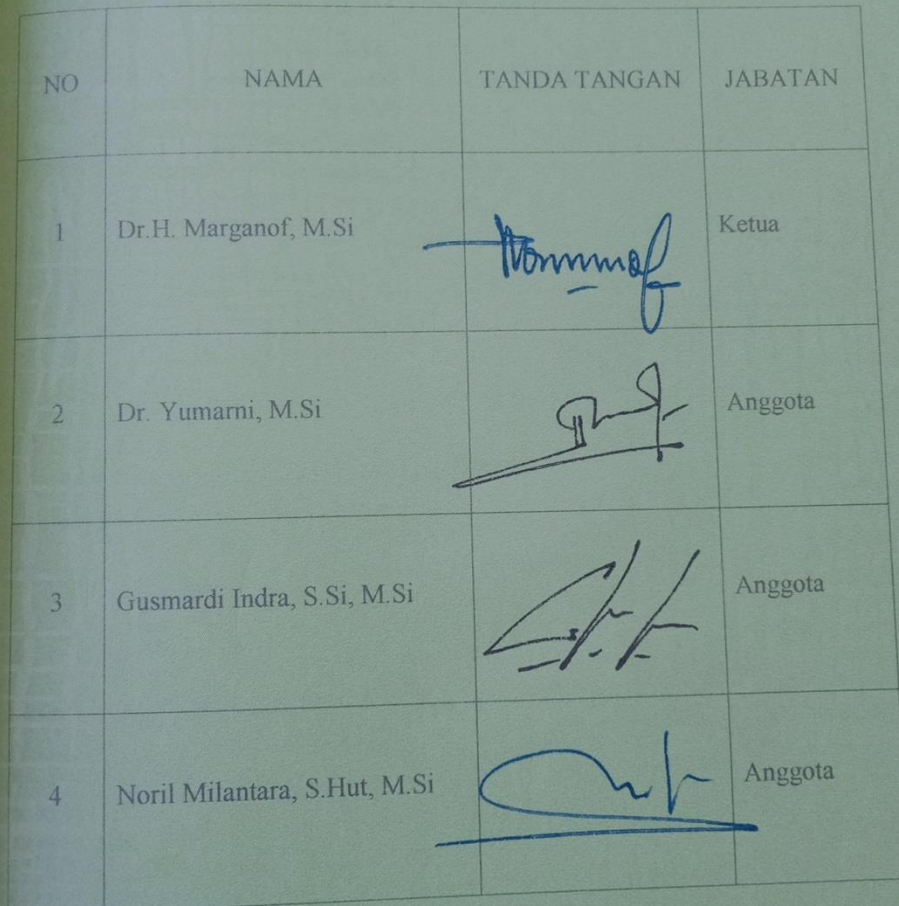 NO NAMA TANDA TANGAN JABATAN
1 Dr.H. Marganof, M.Si Ketua
2 Dr. Yumarni, M.Si Anggota
3 Gusmardi Indra, S.Si, M.Si Anggota
4 Noril Milantara, S.Hut, M.Si Anggota